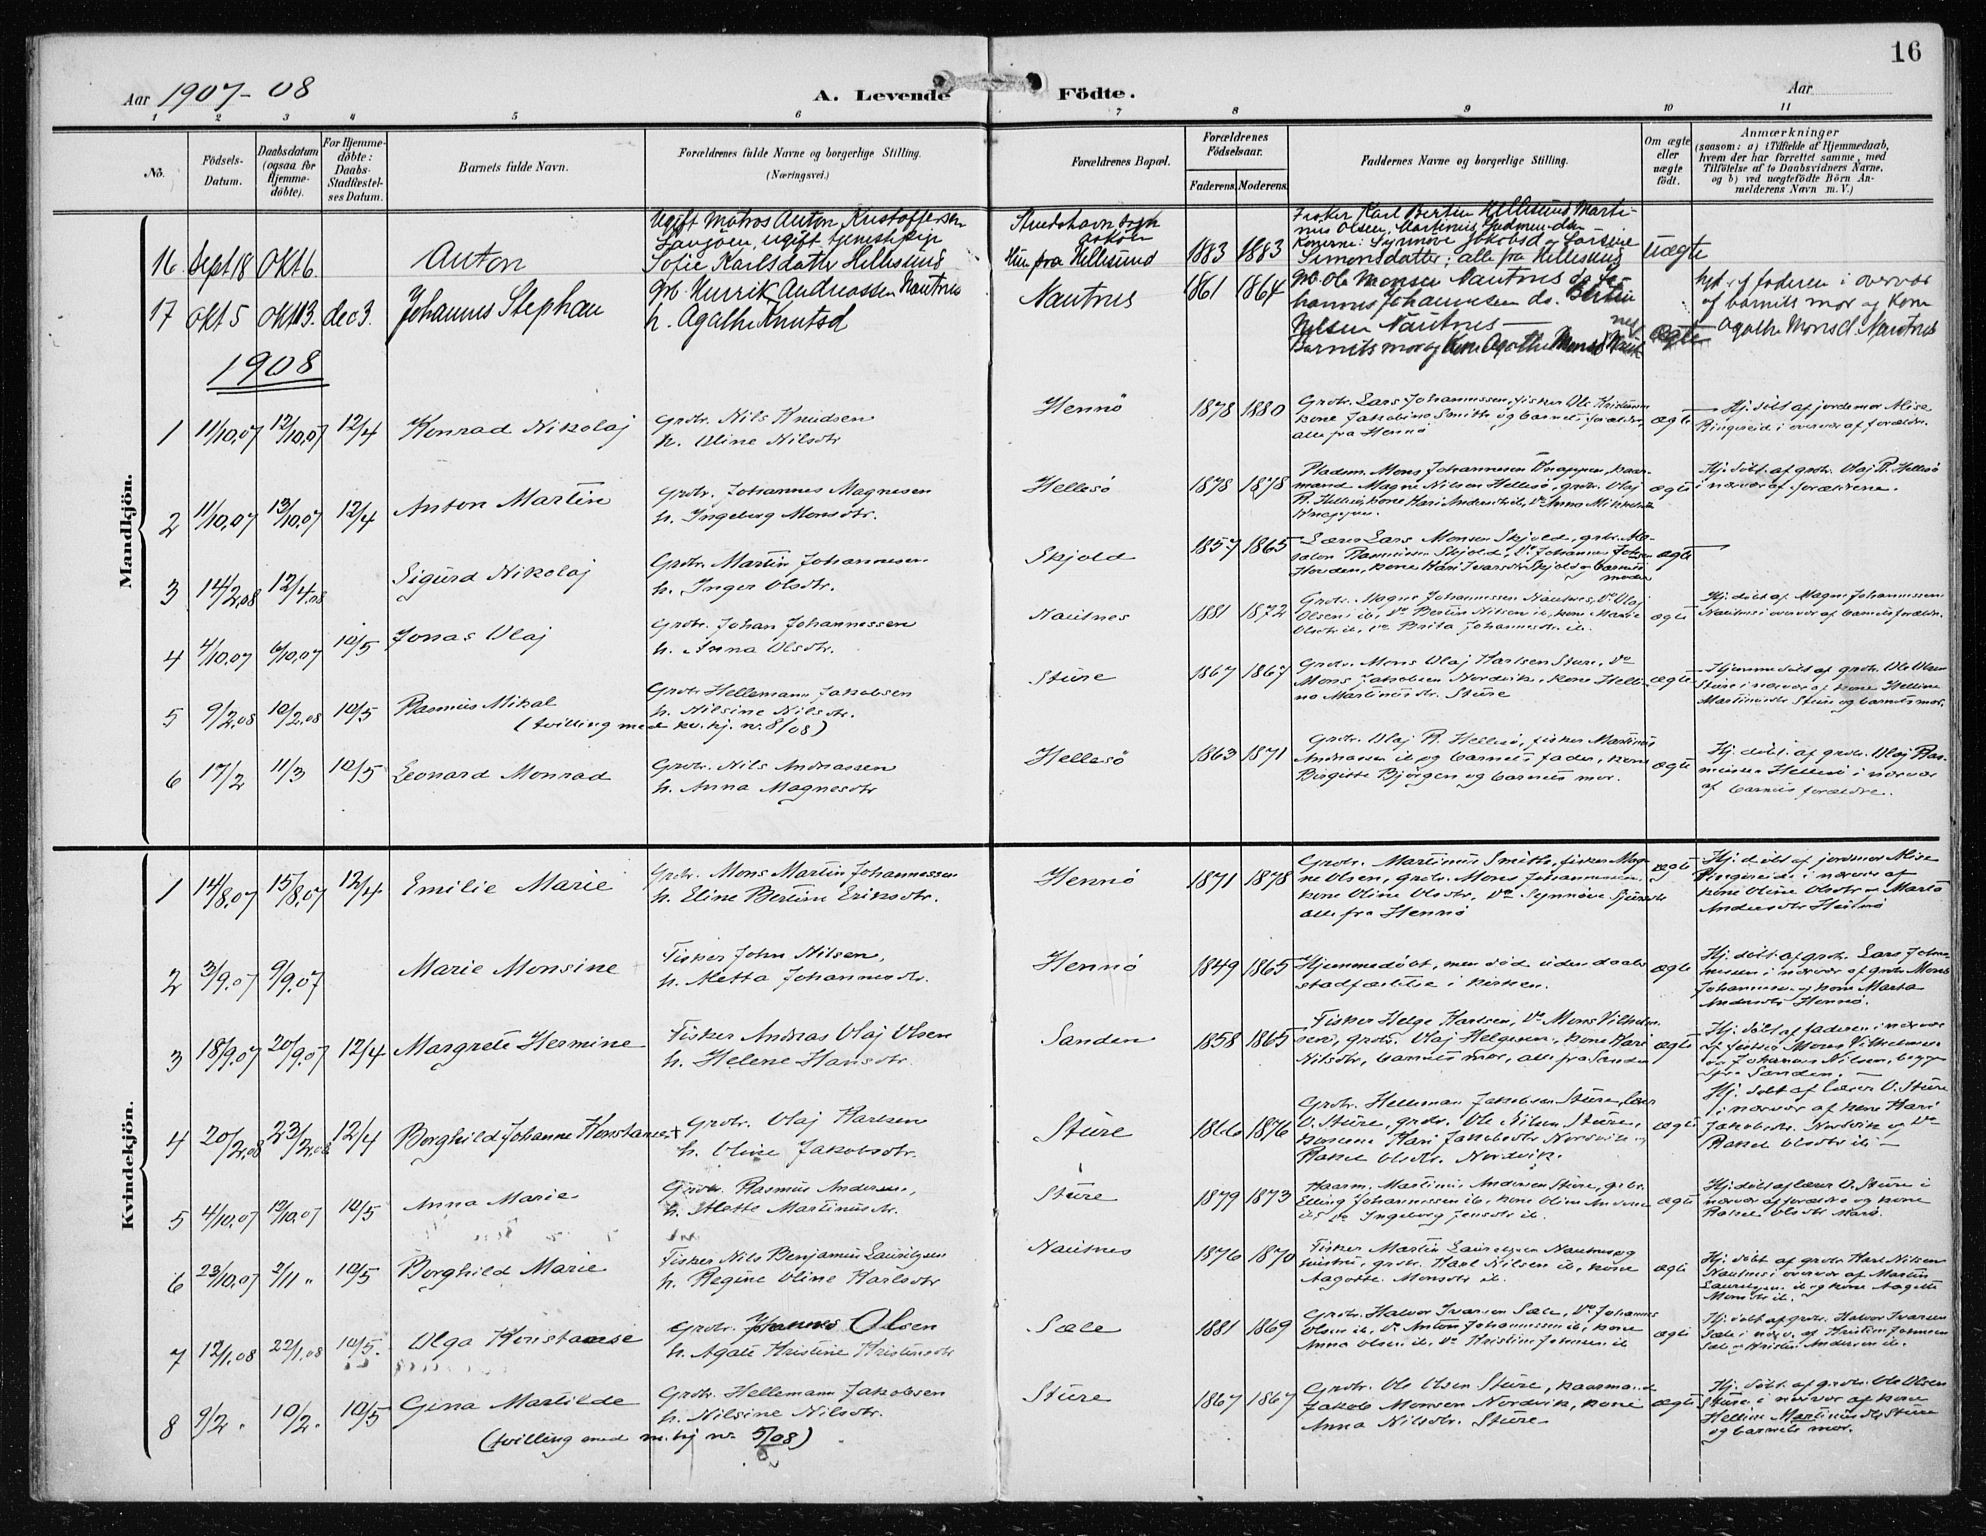 16
Aar 1907-08
A. Levende Födte.
Aar
1 2 3 4 5 6 7 8 9 10 11
No.
Födsels-Datum.
Daabsdatum (ogsaa for Hjemme-döbte).
For Hjemme-döbte: Daabs-Stadfæstel-ses Datum.
Barnets fulde Navn.
Forældrenes fulde Navne og borgerlige Stilling.
(Næringsvei.)
Forældrenes Bopæl.
Forældrenes Födselsaar.
Faderens. Moderens.
Faddernes Navne og borgerlige Stilling.
Om ægte eller uægte födt.
Anmærkninger
(saasom: a) i Tilfælde af Hjemmedaab,
hvem der har forrettet samme, med
Tilföielse af to Daabsvidners Navne,
og b) ved uægtefödte Börn An-
melderens Navn m. V.)
Mandkjön.
16 Sept 18 Okt 6 Anton
Ugift Matros Anton Kristoffersen
ugift tjenestepige
Sofie Karlsdatter Hellesund
Hun fra Hellesund
1883 1883
Fisker Karl Bertin Hellesund, Marti-
nus Olsen, Martinus
Konerne: Synnöve Jakobsd. og
Simonsdatter; alle fra Hellesund
Uægte
17 Okt 5 Okt 13. dec 3. Johannes Stephan
Gb. Henrik Andreassen Nautnes
h. Agathe Knutsd
Nautnes
1861 1864
Gb. Ole Monsen Nautnes do. Jo-
hannes Johannesen do. Bertin
Nilsen Nautnes
Barnets mor og kone Agathe Monsd
ægte
hjd. af faderen i overvær
af barnets mor og kone
Agathe Monsd. Nautnes
1908
1 11/10.07 12/10.07 12/4 Konrad Nikolaj
Grdbr. Nils Knudsen
h. Oline Nilsdtr.
Hennö
1878 1880
Grdbr. Lars Johannessen, fisker Ole Kristensen
kone Jakobine Smith og barnets forældre,
alle fra Hennö
ægte
Hj. döbt af jordemor Alise
Ringereid i overvær af forældre.
2 11/10.07 13/10.07 12/4 Anton Martin
Grdbr. Johannes Magnesen
h. Ingeborg Monsdtr.
Hellesö
1878 1878
Pladsm. Mons Johannesen Knappen, kaar-
mand Magne Nilsen Hellesö, grdbr. Olaj
R. Hellesö, kone Kari Andersdtr ib, Anna
Knappen.
ægte
Hj. döbt af grdbr. Olaj R. Hellesö
i nærvær af forældrene.
3 14/2.08 12/4.08 Sigurd Nikolaj
Grdbr. Martin Johannesen
h. Inger Olsdtr.
Skjold
1857 1865
Lærer Lars Monsen Skjold, grdbr.
Rasmussen Skjold, Johannes
kone Kari Ivarsdtr Skjold og barnets
moder
ægte
4 4/10.07 6/10.07 10/5 Jonas Olaj
Grdbr. Johan Johannessen
h. Anna Olsdtr.
Nautnes
1881 1872
Grdbr. Magne Johannessen Nautnes, Do Olaj
Olsen ib, Do Bertin Nilsen ib, kone Marie
Olsdtr ib, Do Brita Johannesdtr. ib.
ægte
Hj. döbt af Magne Johannessen
Nautnes i overvær af barnets forældre.
5 9/2.08 10/2.08 10/5 Rasmus Mikal
(tvilling med kv. kj. nr. 8/08)
Grdbr. Hellemann Jakobsen
h. Nilsine Nilsdtr.
Sture
1867 1867
Grdbr. Mons Olaj Karlsen Sture, Do
Mons Jakobsen Nordvik, kone Helli-
na Martinusdtr. Sture
ægte
Hjemmedöbt af grdbr. Ole Olsen
Sture i nærvær af kone Helline
Martinusdtr Sture og barnets mor.
6 17/2 11/3 10/5 Leonard Monrad
Grdbr. Nils Andreassen
h. Anna Magnesdtr
Hellesö
1863 1871
Grdbr. Olaj R. Hellesö, fisker Martinus
Andreassen ib og barnets fader, kone
Birgitte Björgen og barnets mor.
ægte
Hj. döbt af grdbr. Olaj Ras-
mussen Hellesö i nærvær
af barnets forældre.
Kvindekjön.
1 14/8.07 15/8.07 12/4 Emilie Marie
Grdbr. Mons Martin Johannessen
h. Eline Bertine Eriksdtr.
Hennö
1871 1878
Grdbr. Martinus Smith, fisker Mag-
ne Olsen, grdbr. Mons Johannessen,
kone Oline Olsdtr, Do Synnöve Sjursdtr
alle fra Hennö
ægte
Hj. döbt af jordmor Alise
Ringereid i nærvær af
kone Oline Olsdtr og Marta
Andersdtr Hennö
2 3/9.07 9/9.07 Marie Monsine
Fisker John Nilsen,
h. Metta Johannesdtr.
Hennö
1849 1865
Hjemmedöbt, men död uden daabs-
stadfæstelse i kirken.
ægte
Hj. döbt af grdbr. Lars Johan-
nesen i nærvær af grdbr Mons
Johannesen og kone Marta
Andersdtr Hennö.
3 18/9.07 20/9.07 12/4 Margrete Hermine
Fisker Andreas Olaj Olsen
h. Helene Hansdtr.
Sanden
1858 1865
Fisker Helge Karlsen, Do Mons Vilhelm-
sen, grdbr. Olaj Helgesen, kone Kari
Nilsdtr, barnets mor, alle fra Sanden
ægte
Hj. döbt af faderen i nærvær
af fisker Mons Vilhelmsen
og Johannes Nilsen, begge
fra Sanden.
4 20/2.08 23/2.08 12/4 Borghild Johanne Konstance
Grdbr. Olaj Karlsen
h. Oline Jakobsdtr.
Sture
1866 1876
Grdbr. Helleman Jakobsen Sture, lærer
O. Sture, grdbr. Ole Nilsen Sture,
konerne Kari Jakobsdtr Nordvik og
Rakel Olsdtr. Nordvik.
ægte
Hj. döbt af lærer O. Sture
i nærvær af kone Kari
Jakobsdtr. Nordvik og Do
Rakel Olsdtr ib.
5 4/10.07 10/5 Anna Marie
Grdbr. Rasmus Andersen,
h. Mette Martinusdtr.
Sture
1879 1873
Kaarm. Martinus Andersen Sture, grdbr.
Elling Johannessen ib, kone Oline
ib, Do Ingeborg Jensdtr ib.
ægte
Hj. döbt af lærer O. Sture i
nærvær af forældre og kone
Rakel Olsdtr
6 23/10.07 3/11 " 10/5 Borghild Marie
Fisker Nils Benjamin Lauritzsen
h. Regine Oline Karlsdtr
Nautnes
1876 1870
Fisker Martin Lauritzsen Nautnes og
hustru, grdbr. Karl Nilsen ib, kone
Aagotte Monsdtr ib.
ægte
Hj. döbt af grdbr. Karl Nilsen
Nautnes i overvær af Martin
Lauritzsen ib og kone Aagotte
Monsdtr ib.
7 12/1.08 22/1.08 10/5. Olga Konstanse
Grdbr. Johannes Olsen
h. Agate Kristine Kristensdtr
Sæle
1881 1869
Grdbr. Halvor Ivarsen Sæle, Do Johannes
Olsen ib, Do Anton Johannessen ib, kone
Anna Olsen ib, Do Kristine Johnsen ib
ægte
Hj. döbt af grdbr. Halvor Ivarsen
Sæle i nærv. af Kristine Johnsen
Sæle og Andersen ib.
8 9/2 " 10/2 " 10/5 Gina Martilde
(tvilling med m. kj nr. 5/08)
Grdbr. Hellemann Jakobsen
h. Nilsine Nilsdtr.
Sture
1867 1867
Grdbr. Ole Olsen Sture, kaarmand
Jakob Monsen Nordvik, kone
Anna Nilsdtr. Sture
ægte
Hj. döbt af grdbr. Ole Olsen
Sture i nærvær af kone
Helline Martinusdtr Sture
og barnets mor.